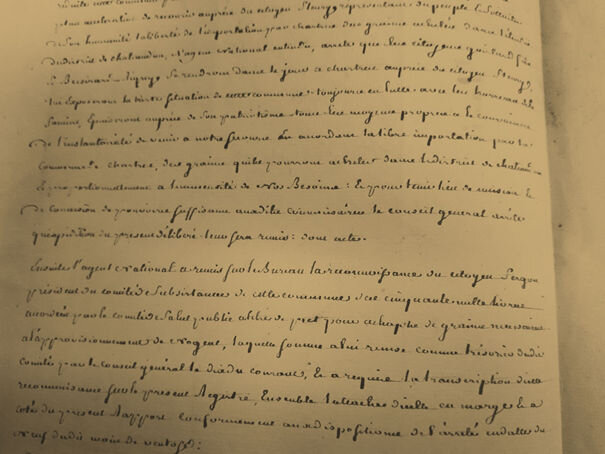 pour accelerer de recourir auprès du citoyen représentant du peuple
de son humanité la liberté de l'exportation pour chartres des graines achetées dans l'étendue
du district de chateaudun, L'agent national entendu, arrete que les citoyens
se rendront dans le jour a chartres auprès du citoyen
lui exposeront la triste situation de cette commune toujours en lutte avec les horreurs de la
famine, Epuiseront auprès de son patriotisme tous les moyens propres a le convaincre
de l'instantanéité de venir a notre secours En accordant la libre importation pour la
commune de chartres, des graines qu'ils pourront acheter dans le district de chateaudun
Et proportionnellement a l'immensité de nos Besoins : Et pour tenir lieu de mission Et
de commission de pouvoirs suffisans auxdits commissaires le conseil general arrête
qu'expédition du présent délibéré leur sera remis : dont acte.
Ensuite l'agent National a remis sur le Bureau la reconnoissance du citoyen
président du comité de subsistances de cette commune des cinquante mille livres
accordées par le comité de Salut public a titre de pret pour achapts de graines necessaires
a l'approvisionnement de Nogent, laquelle somme a lui remise comme trésorier dudit
comité par le conseil général le dix du courant, Et a requis la transcription de la
reconnoissance sur le présent Registre, Ensemble l'attache d'icelle en marge Et a
coté du présent Rapport conformement aux dispositions de l'arrêté en date du
neuf dudit mois de ventose :